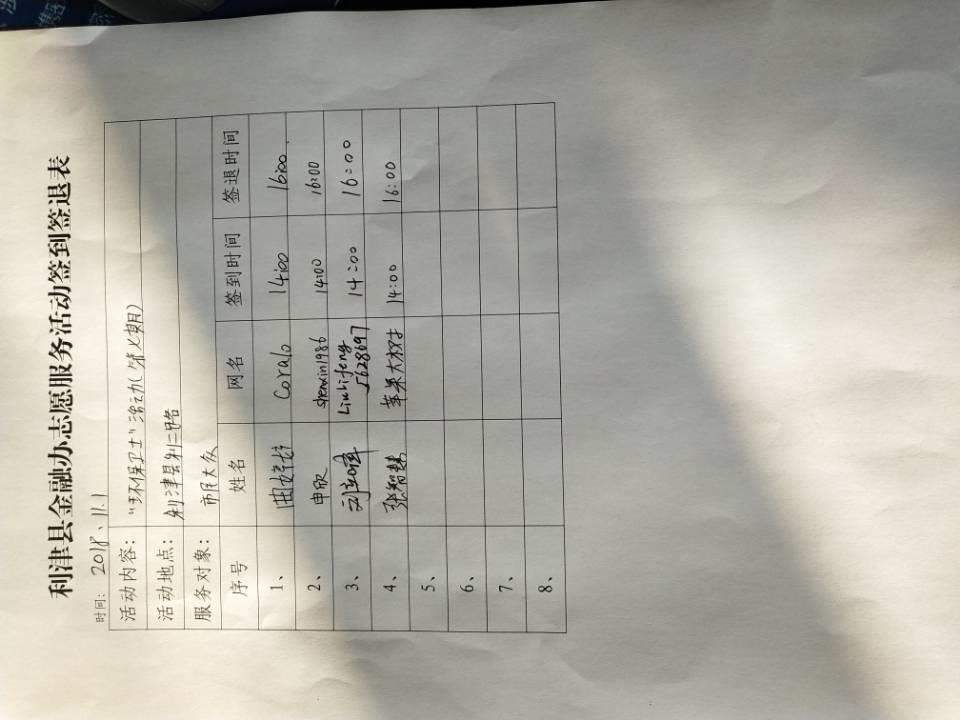 利津县金融办志愿服务活动签到签退表
时间: 2018、11.1
活动内容: "环保卫士"活动(第七期)
活动地点: 利津县利三路
服务对象: 市民大众
序号 姓名 网名 签到时间 签退时间
1、 田婷婷 Coralo 14:00 16:00
2、 申欣 shenxin1986 14:00 16:00
3、 Liulifeng 14:00 16:00
5628697
4、 张智慧 苹果大树 14:00 16:00
5、
6、
7、
8、